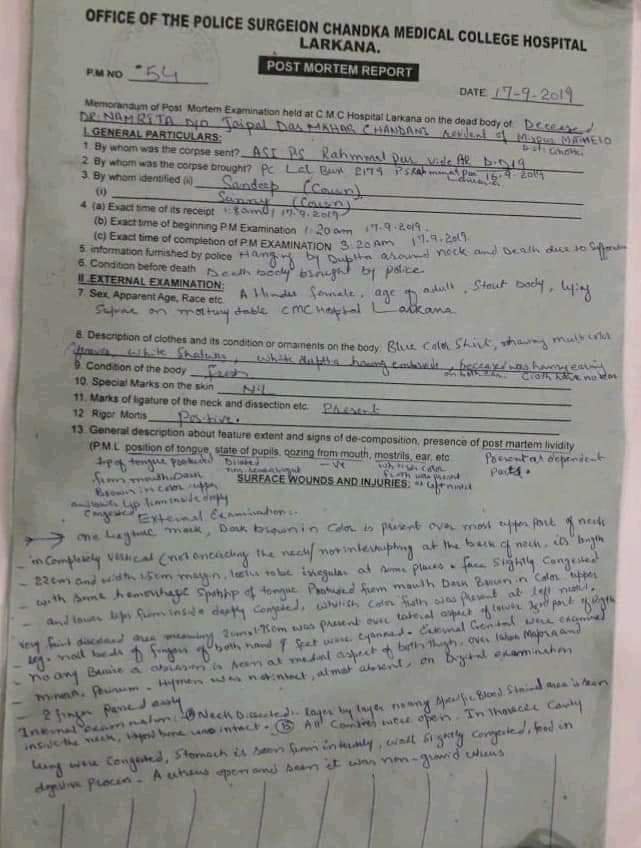 OFFICE OF THE POLICE SURGEION CHANDKA MEDICAL COLLEGE HOSPITAL
LARKANA.
POST MORTEM REPORT
P.M NO 54
DATE: 17-9-2019
Memorandum of Post Mortem Examination held at C.M.C Hospital Larkana on the dead body of: Deceased
DR: NAMRITA D/O Jaipal Das MAHAR CHANDANI resident of Mirpur MATHELO
I. GENERAL PARTICULARS:
1. By whom was the corpse sent? ASI PS Rahmmat Pur vide
2. By whom was the corpse brought? PC Lal Bux 2179 PS Rahmmat Pur Larkana 16-9-2019
3. By whom identified (ii) Sandeep (Cousn)
(i) Sunny (Cousn)
4. (a) Exact time of its receipt 17-9-2019
(b) Exact time of beginning P.M Examination 1:20am 17-9-2019.
(c) Exact time of completion of P.M EXAMINATION 3:20am 17-9-2019.
5. information furnished by police Hanging by Duptta around neck and Death due to Suffocation
6. Condition before death Death body brought by police
II EXTERNAL EXAMINATION:
7. Sex, Apparent Age, Race etc. A Hindu female, age of adult, Stout body, lying
Supine on mortury table CMC Hospital Larkana
8. Description of clothes and its condition or ornaments on the body: Blue Color Shirt, having multi color
white Shalwar, white duptta having
9. Condition of the body Fresh
10. Special Marks on the skin Nil
11. Marks of ligature of the neck and dissection etc. Present
12 Rigor Mortis Positive.
13. General description about feature extent and signs of de-composition, presence of post martem lividity
(P.M.L position of tongue, state of pupils, oozing from mouth, mostrils, ear, etc
tip of tongue Protruded Dilated -ve whitish color Present at dependent
from mouth Dark froth was present parts.
Brown in color upper at left nostril
SURFACE WOUNDS AND INJURIES:
and lower lip from inside deeply
Congested
External Examination:-
one ligature mark, Dark brown in color is present over most upper part of neck
incompletely vertical (not encircling the neck/not interrupting at the back of neck, its length
22cm and width 1.5cm margin, looks to be irregular at some places - face slightly Congested
with some hemorrhage tip of tongue Protruded from mouth Dark Brown in Color upper
and lower lips from inside deeply Congested, whitish Color froth was present at left nostril.
very faint area measuring 2cm x 1.75cm was present over lateral aspect of lower 3rd part of Right
leg - nail beds of fingers of both hand & feet were cyanosed - External Genital were examined
no any Bruise or abrasion is seen at medial aspect of both thigh, over labia Majora and
minora. - Hymen was not intact, almost absent, on Digital examination
2 finger easily
Internal examination:- (A) Neck Dissected:- layer by layer no any specific Blood Stained area is seen
inside the neck, Hyoid bone was intact - (B) All Cavities were open. In Thoracic Cavity
lung were Congested, Stomach is seen from wall slightly Congested, food in
digestive Process - A uterus open and seen it was non-gravid uterus